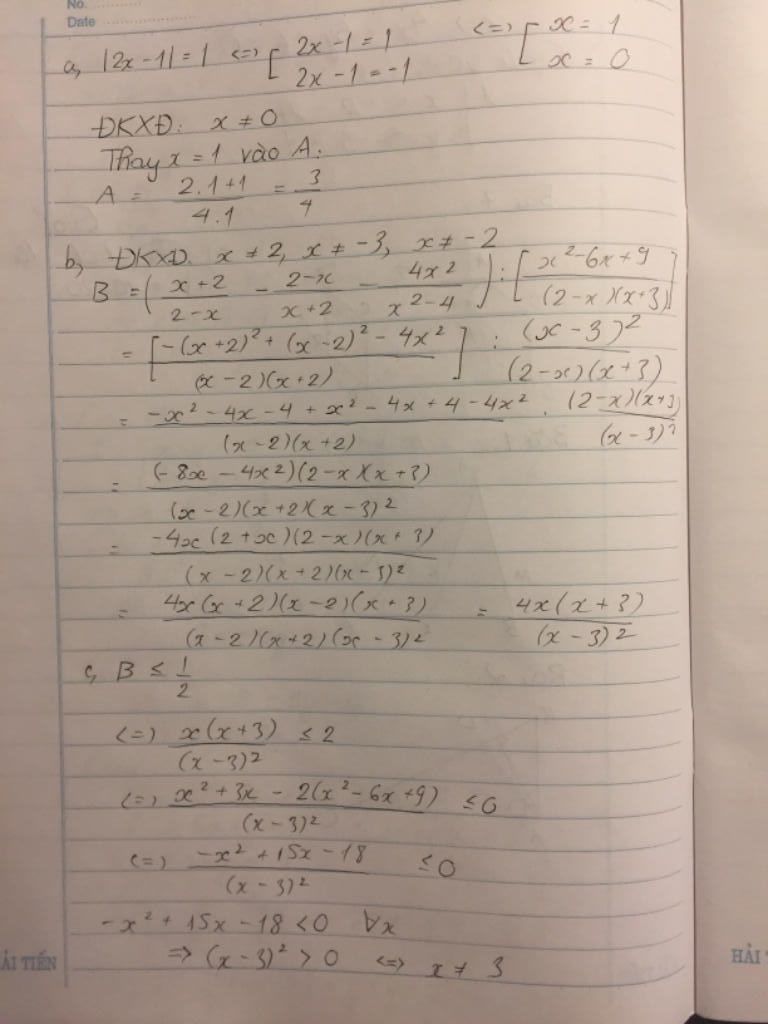 No.
Date
a, |2x - 1| = 1 <=> [ 2x - 1 = 1 <=> [ x = 1
2x - 1 = -1 x = 0
ĐKXĐ: x ≠ 0
Thay x = 1 vào A:
A = (2.1+1)/(4.1) = 3/4
b, ĐKXĐ. x ≠ 2, x ≠ -3, x ≠ -2
B = ( (x+2)/(2-x) - (2-x)/(x+2) - 4x²/(x²-4) ) : [ (x²-6x+9)/((2-x)(x+3)) ]
= [ (-(x+2)² + (x-2)² - 4x²)/((x-2)(x+2)) ] : (x-3)²/((2-x)(x+3))
= (-x² - 4x - 4 + x² - 4x + 4 - 4x²)/((x-2)(x+2)) . ((2-x)(x+3))/(x-3)²
= ((-8x - 4x²)(2-x)(x+3))/((x-2)(x+2)(x-3)²)
= (-4x(2+x)(2-x)(x+3))/((x-2)(x+2)(x-3)²)
= (4x(x+2)(x-2)(x+3))/((x-2)(x+2)(x-3)²) = (4x(x+3))/(x-3)²
c, B ≤ 1/2
<=> (x(x+3))/(x-3)² ≤ 2
<=> (x² + 3x - 2(x² - 6x + 9))/(x-3)² ≤ 0
<=> (-x² + 15x - 18)/(x-3)² ≤ 0
-x² + 15x - 18 < 0 ∀x
=> (x-3)² > 0 <=> x ≠ 3
ẢI TIẾN
HẢI